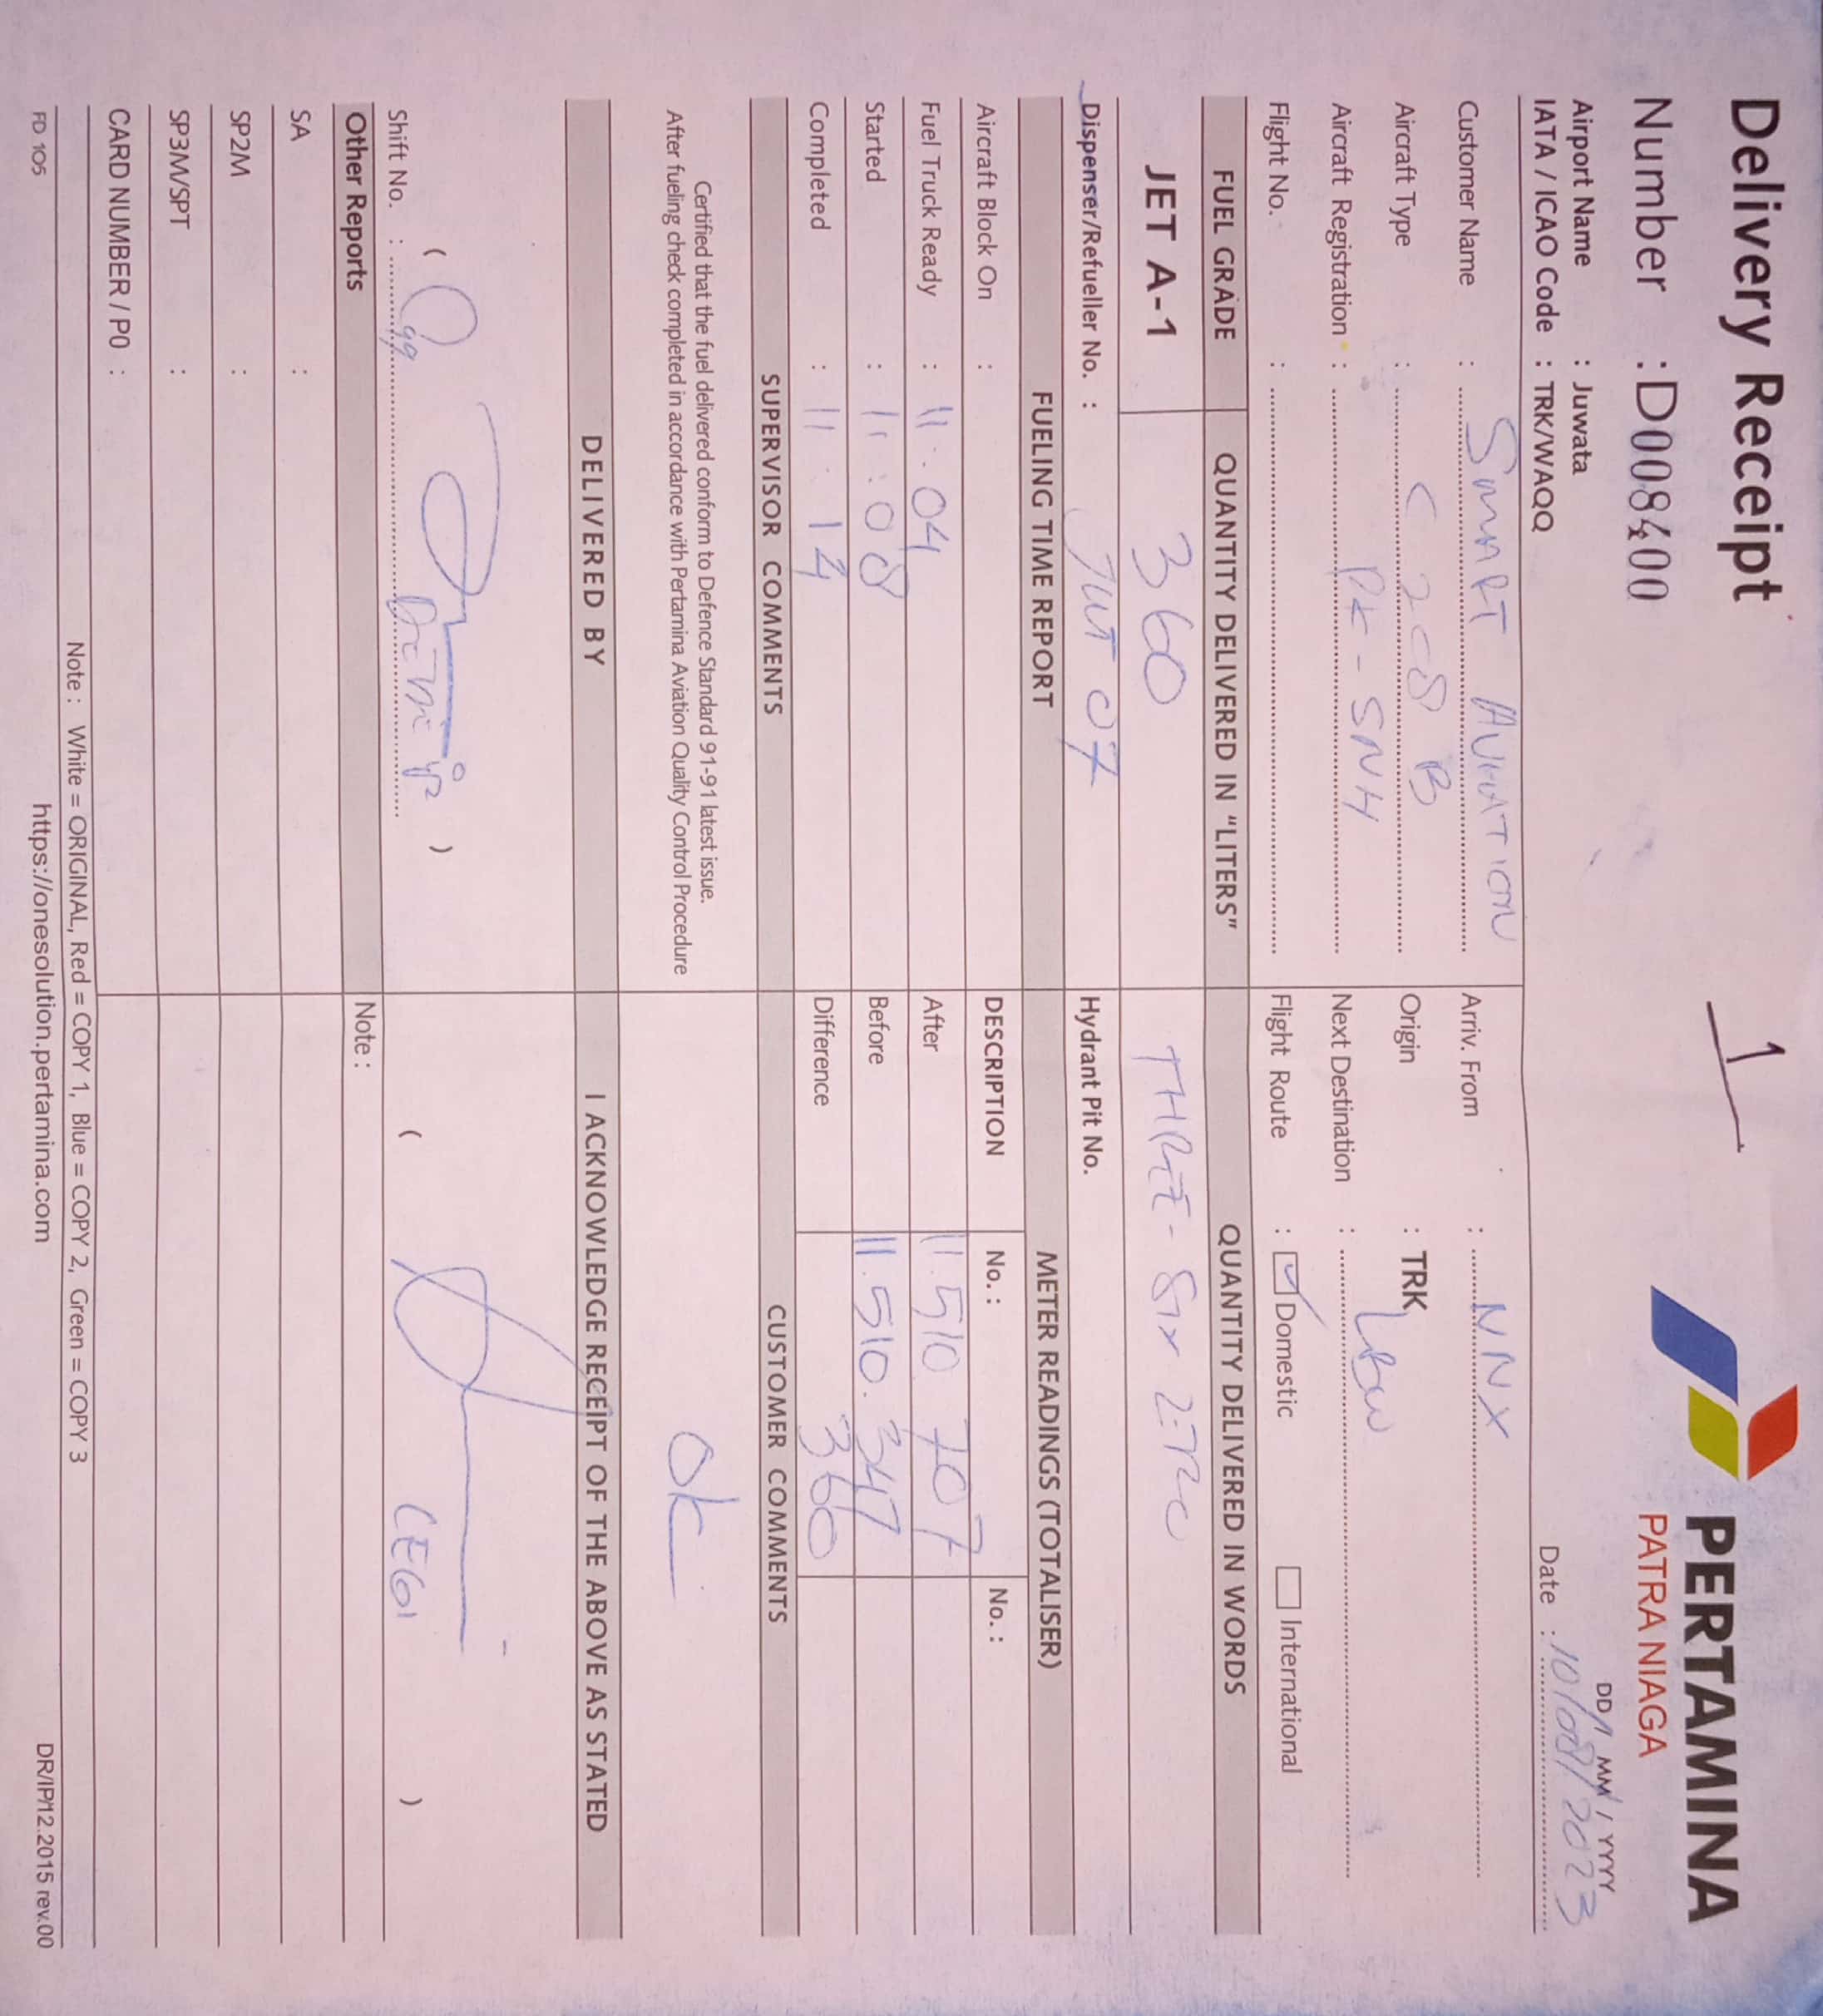 Delivery Receipt
1
PERTAMINA
PATRA NIAGA
Number : D008400
DD / MM / YYYY
Airport Name : Juwata
IATA / ICAO Code : TRK/WAQQ
Date : 10/08/2023
Customer Name : SMART AVIATION
Arriv. From : NNX
Aircraft Type : C 208 B
Origin : TRK
Aircraft Registration : PK-SNH
Next Destination : LBW
Flight No. :
Flight Route : Domestic International
FUEL GRADE QUANTITY DELIVERED IN "LITERS" QUANTITY DELIVERED IN WORDS
JET A-1 360 THREE-SIX ZERO
Dispenser/Refueller No. : JWT 07 Hydrant Pit No.
FUELING TIME REPORT METER READINGS (TOTALISER)
Aircraft Block On : DESCRIPTION No. : No. :
Fuel Truck Ready : 11.04 After 11.510 707
Started : 11:08 Before 11.510.347
Completed : 11.14 Difference 360
SUPERVISOR COMMENTS CUSTOMER COMMENTS
Certified that the fuel delivered conform to Defence Standard 91-91 latest issue.
After fueling check completed in accordance with Pertamina Aviation Quality Control Procedure
OK
DELIVERED BY I ACKNOWLEDGE RECEIPT OF THE ABOVE AS STATED
( ) ( )
Shift No. :
Other Reports Note :
SA :
SP2M :
SP3M/SPT :
CARD NUMBER / PO :
Note : White = ORIGINAL, Red = COPY 1, Blue = COPY 2, Green = COPY 3
FD 105 https://onesolution.pertamina.com DR/IP/12.2015 rev.00